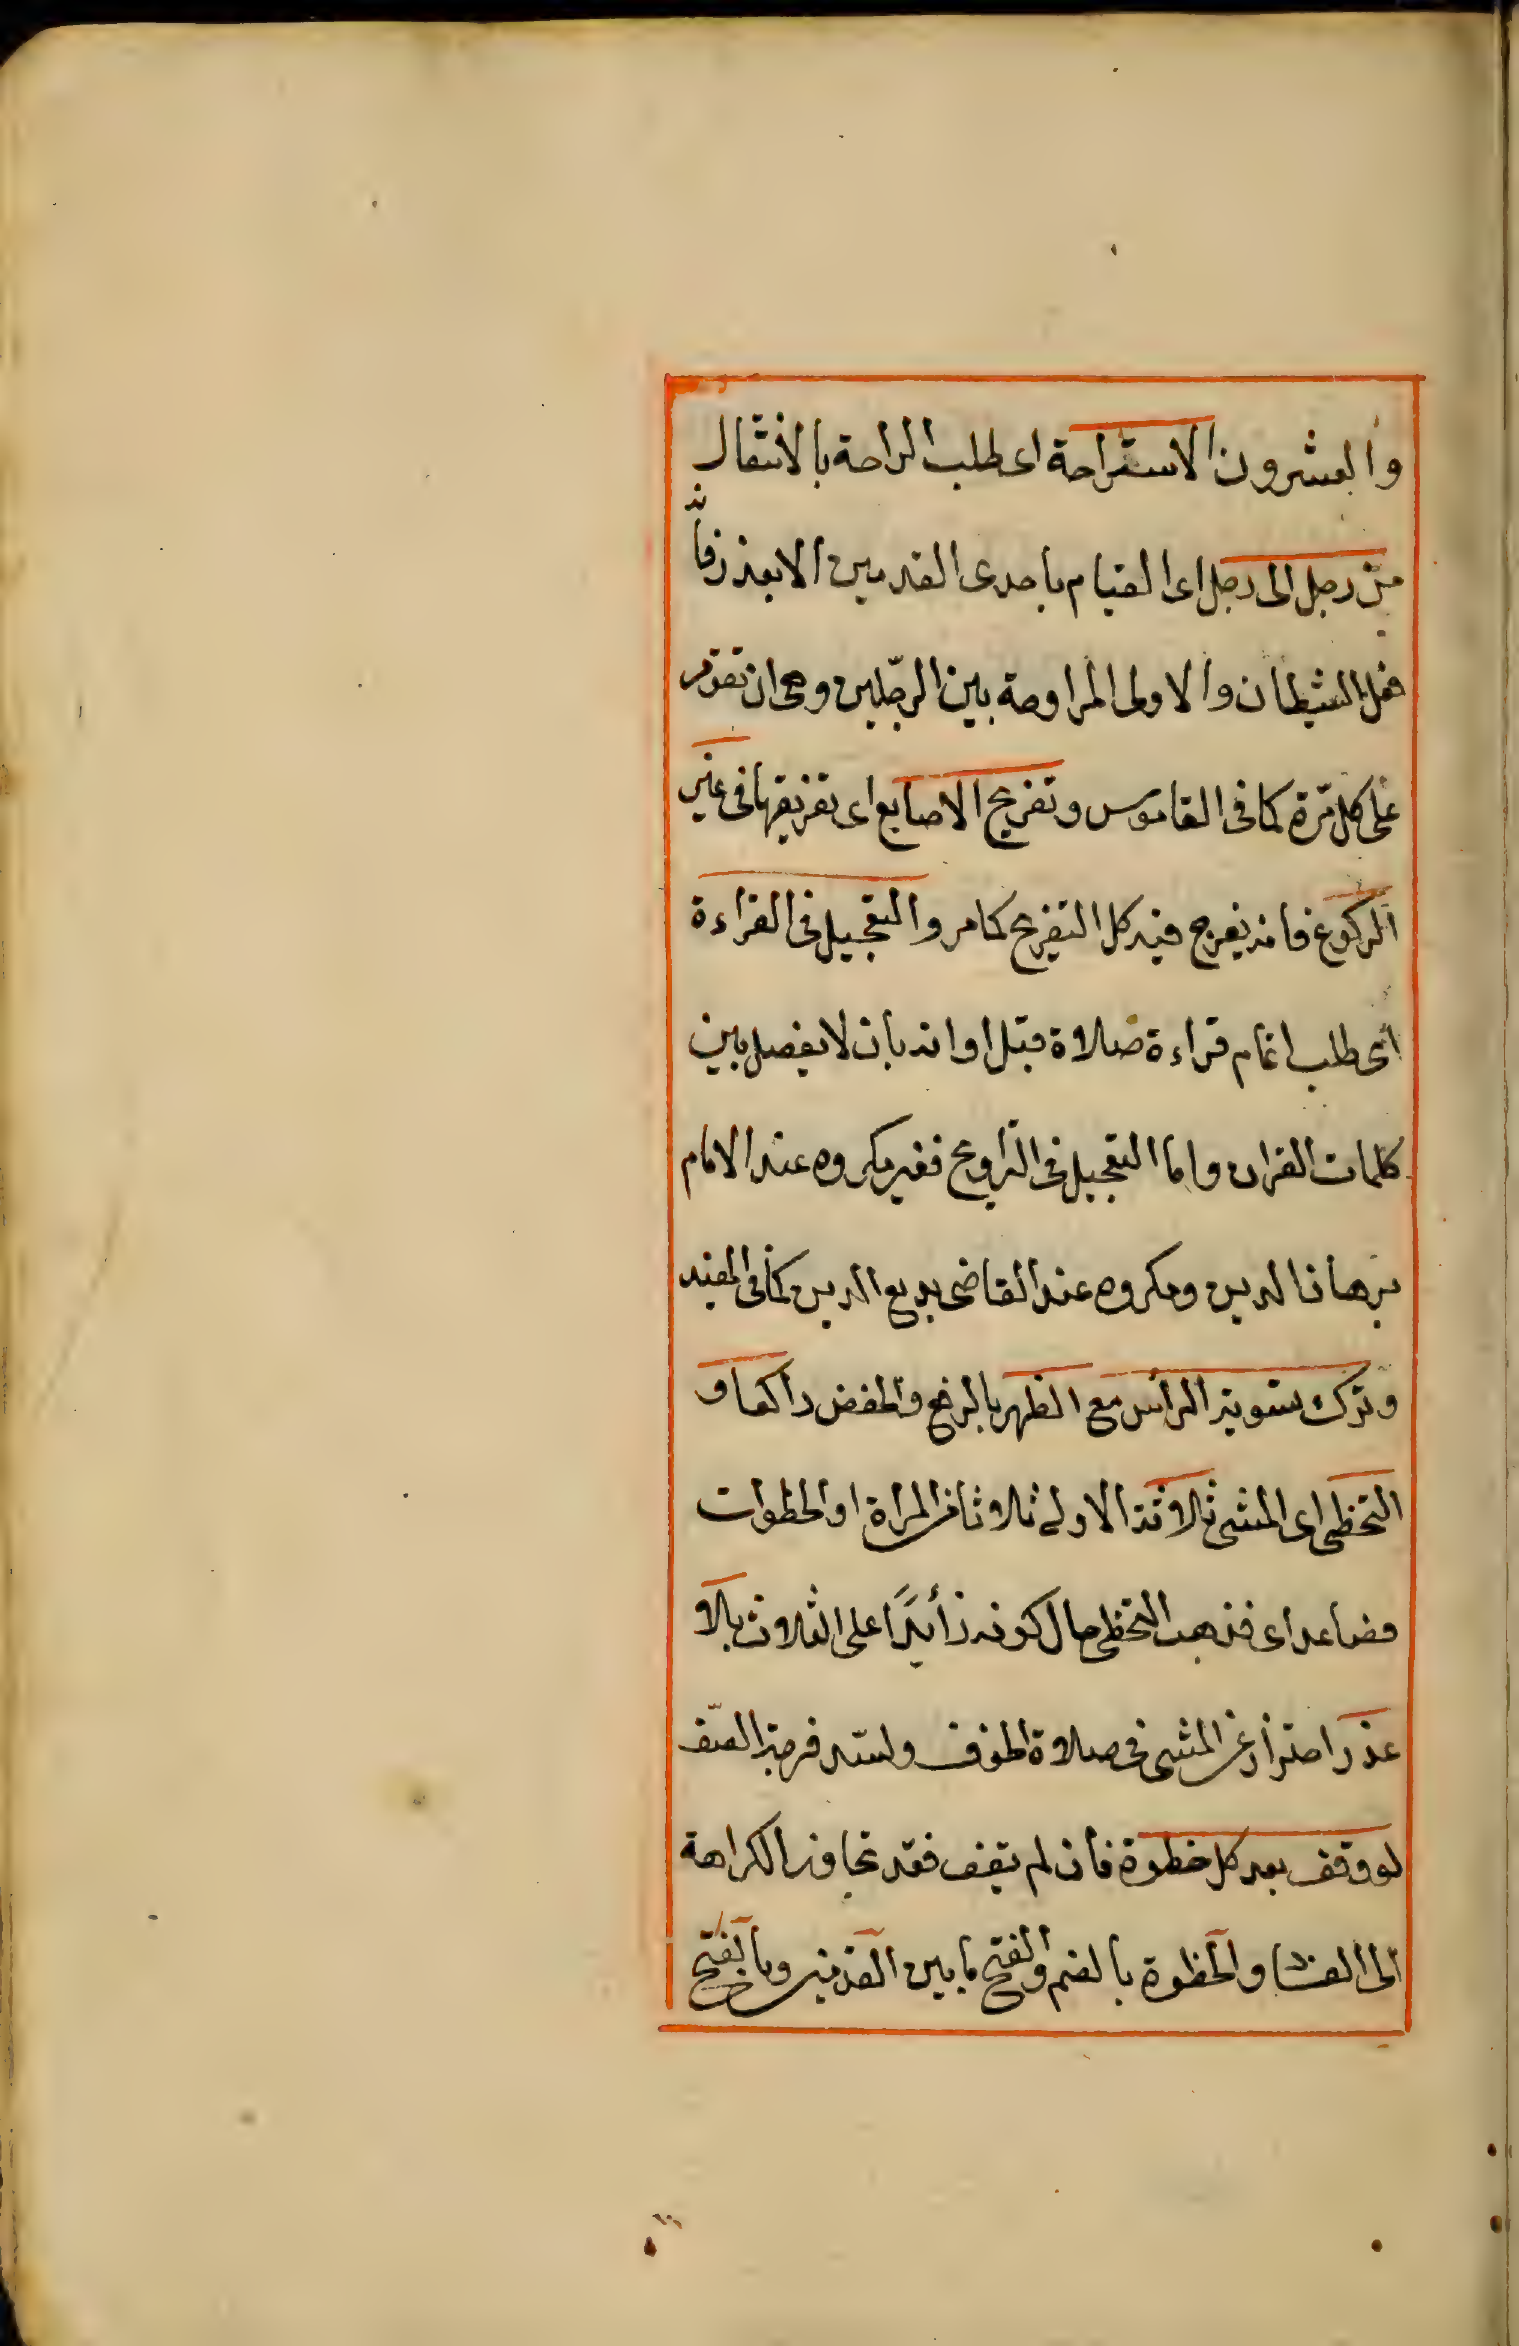 والعشرون الاستراحة اى طلب الراحة بالانتقال
من رجل الى رجل اى القيام باحدى القدمين الا بعذر فانه
فعل الشيطان والاولى المراوحة بين الرجلين وهى ان تقوم
على كل مرة كما فى القاموس وتفريج الاصابع اى تفريقها فى غير
الركوع فانه يفرج فيه كل التفريج كما مر والتعجيل فى القراءة
اى طلب اتمام قراءة صلاة قبل اوانه بان لا يفصل بين
كلمات القران واما التعجيل فى التراويح فغير مكروه عند الامام
برهان الدين ومكروه عند القاضى بديع الدين كما فى المفيد
وترك تسوية الرأس مع الظهر بالرفع والخفض راكعا و
التخطى اى المشى ثلاثة الاولى ثلاثا من المرأة او الخطوات
فصاعدا اى فذهب التخطى حال كونه زائدا على الثلاث بلا
عذر احتراز عن المشى فى صلاة الخوف ولسد فرجة الصف
لو وقف بعد كل خطوة فان لم يقف فقد تجاوز الكراهة
الى الفساد والخطوة بالضم والفتح ما بين القدمين وبالفتح